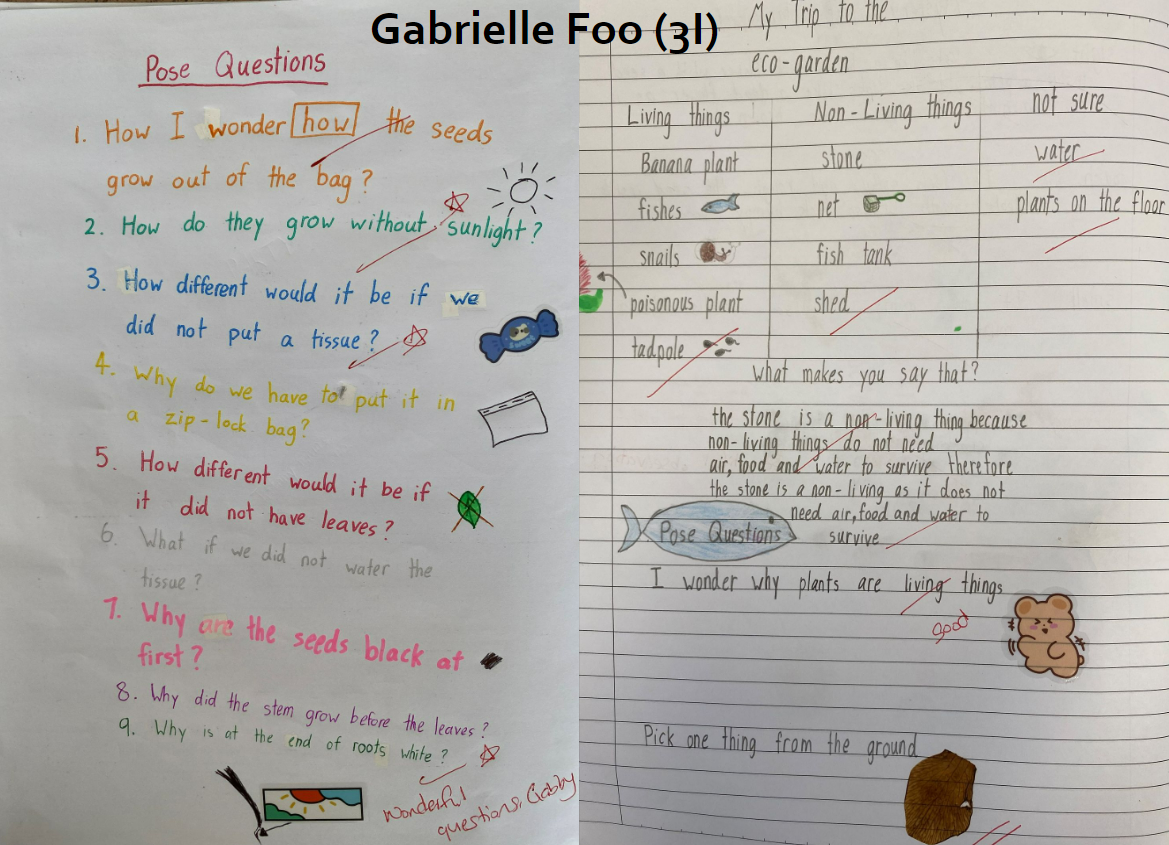 Gabrielle Foo (3I)
Pose Questions
1. How I wonder how the seeds
grow out of the bag?
2. How do they grow without sunlight?
3. How different would it be if we
did not put a tissue?
4. Why do we have to put it in
a zip-lock bag?
5. How different would it be if
it did not have leaves?
6. What if we did not water the
tissue?
7. Why are the seeds black at
first?
8. Why did the stem grow before the leaves?
9. Why is at the end of roots white?
Wonderful
questions, Gabby
My Trip to the
eco-garden
Living things Non-Living things not sure
Banana plant stone water
fishes net plants on the floor
snails fish tank
poisonous plant shed
tadpole
What makes you say that?
the stone is a non-living thing because
non-living things do not need
air, food and water to survive therefore
the stone is a non-living as it does not
need air, food and water to
survive
Pose Questions
I wonder why plants are living things
good
Pick one thing from the ground